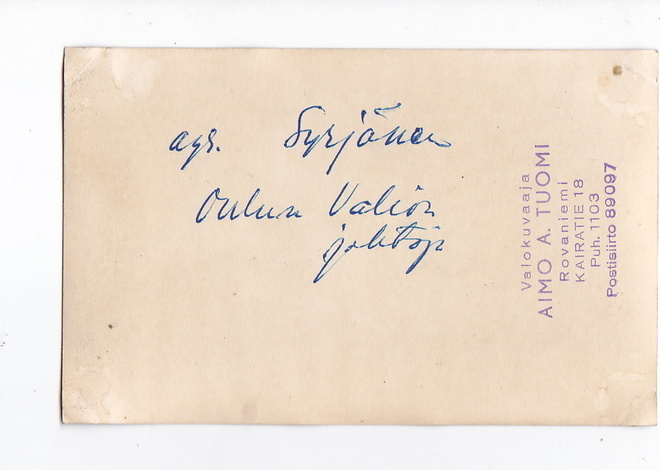 agr. Syrjänen
Oulun Valion
johtaja
Valokuvaaja
AIMO A. TUOMI
Rovaniemi
KAIRATIE 18
Puh. 1103
Postisiirto 89097